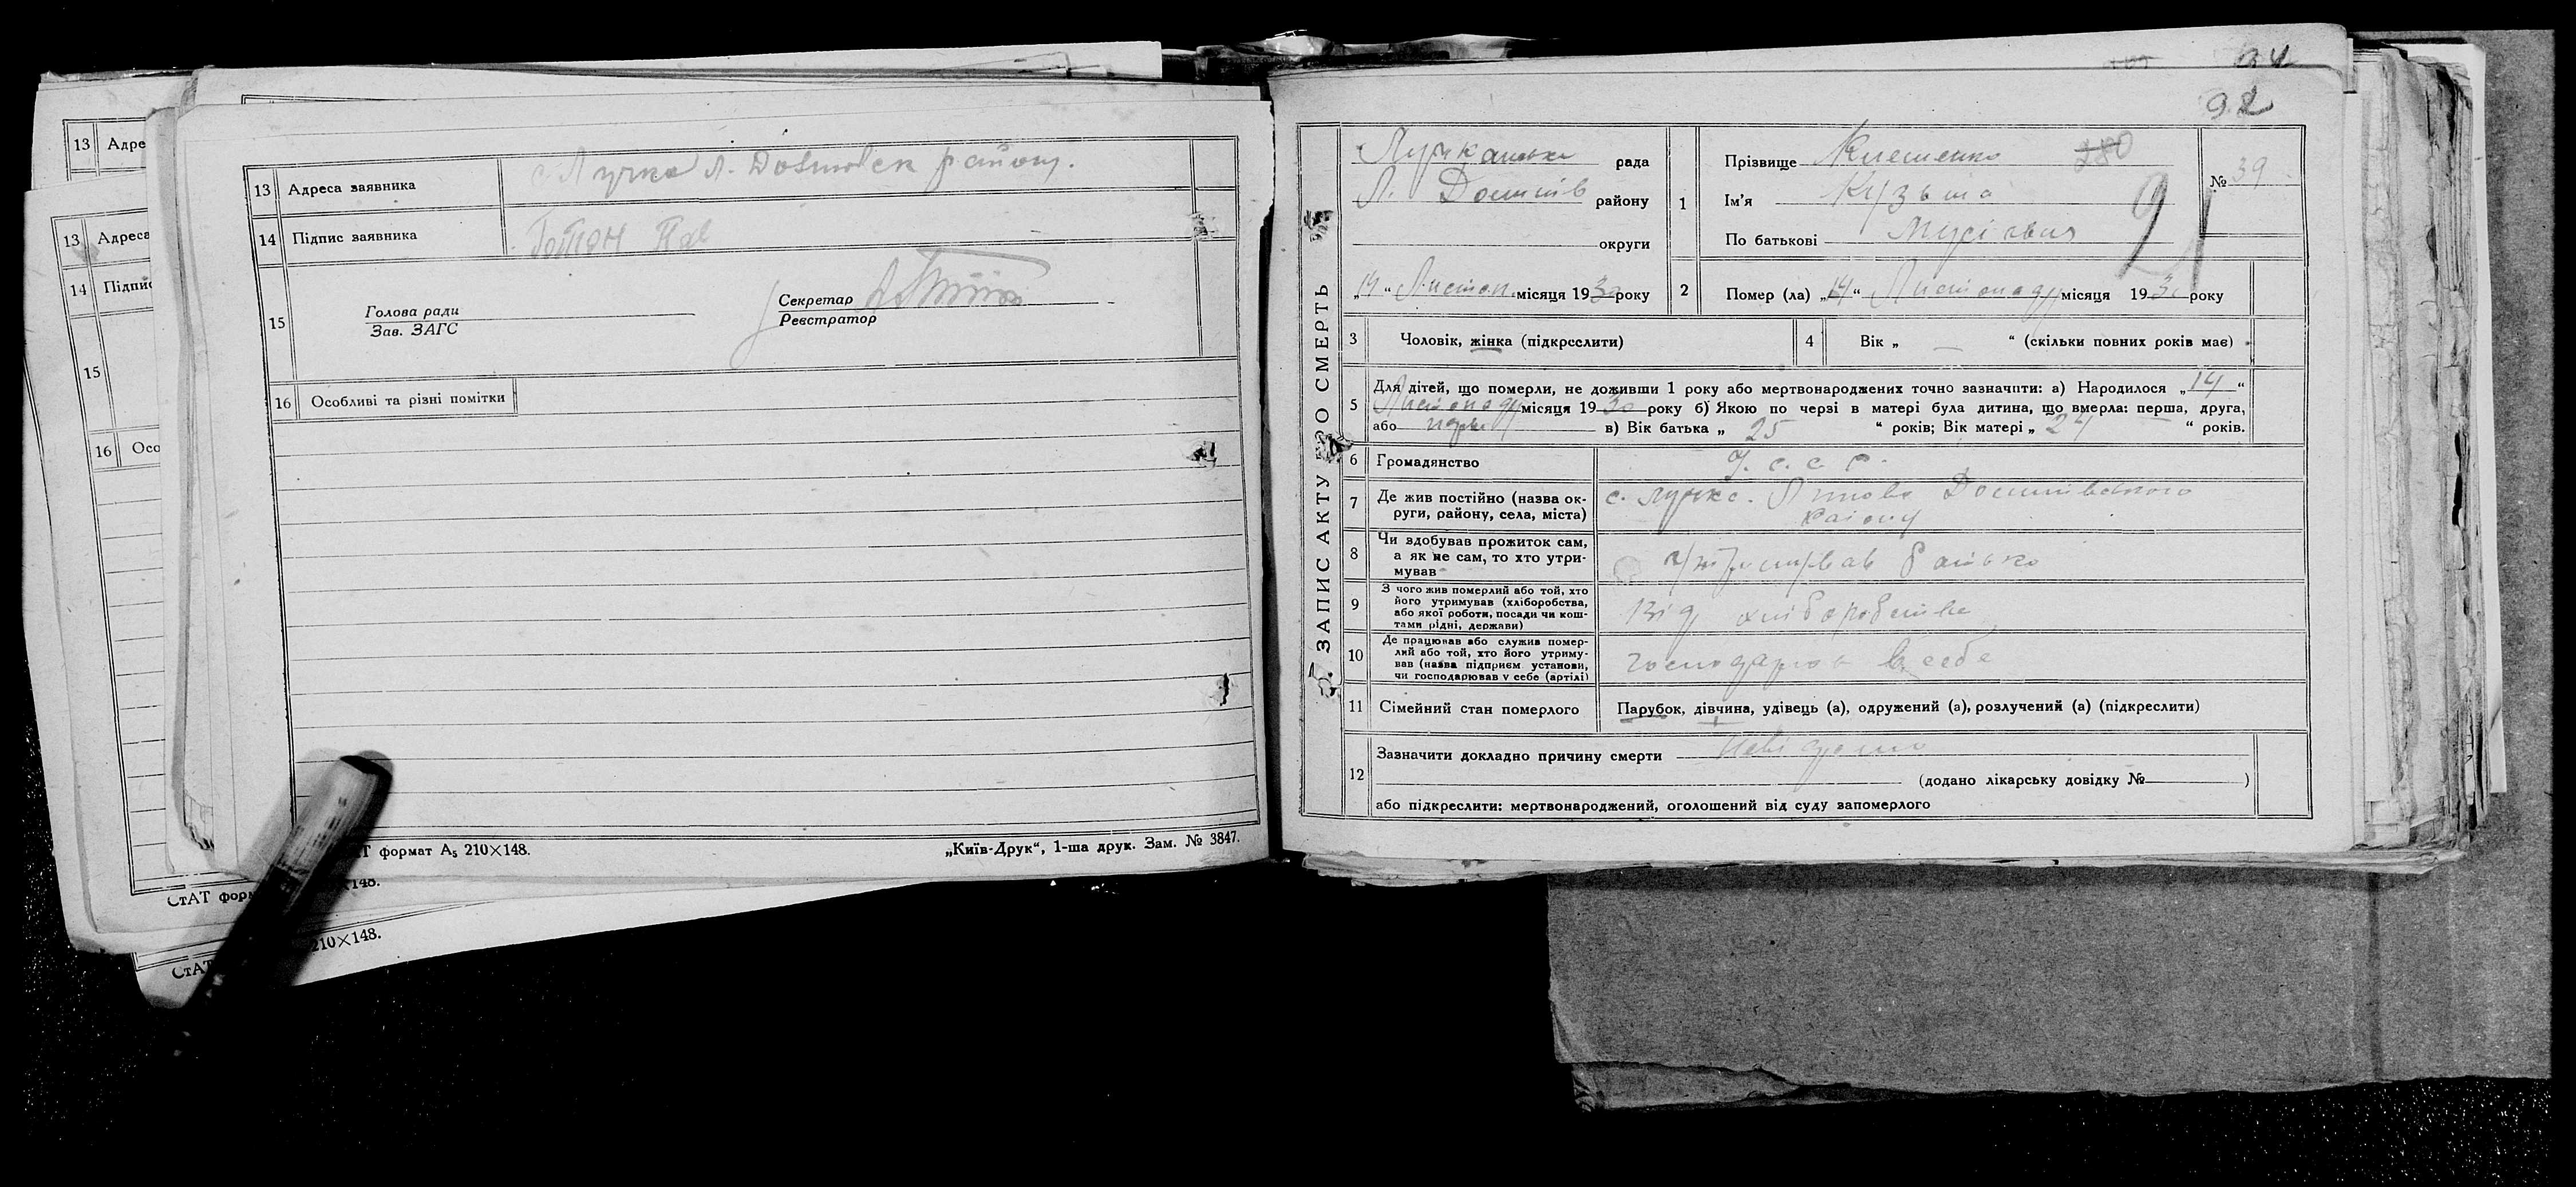 13 Адре
13 Адреса
14 Підпис
15
16 Осо
СтАТ форм
×148.
210×148.
СтАТ
13 Адреса заявника с. Лучка Л. Долинськ району.
14 Підпис заявника
15 Голова ради
Зав. ЗАГС
Секретар
Реєстратор
16 Особливі та різні помітки
АТ формат А₅ 210×148.
„Київ-Друк“, 1-ша друк. Зам. № 3847.
94
92
5. ЗАПИС АКТУ ПРО СМЕРТЬ
Лучканська рада
Л. району
округи
„14“ Листоп. місяця 1930 року
1 Прізвище Клешенко 380
№ 39
Ім'я Кузьма
По батькові Мусієвич
91
2 Помер (ла) „14“ Листопаду місяця 1930 року
3 Чоловік, жінка (підкреслити)
4 Вік „ — “ (скільки повних років має)
5 Для дітей, що померли, не доживши 1 року або мертвонароджених точно зазначити: а) Народилося „14“
Листопаду місяця 1930 року б) Якою по черзі в матері була дитина, що вмерла: перша, друга,
або в) Вік батька „ 25 “ років; Вік матері „ 24 “ років.
6 Громадянство У. С. С. Р.
7 Де жив постійно (назва ок-
руги, району, села, міста)
с. Лучка. Липово Долинського
району
8 Чи здобував прожиток сам,
а як не сам, то хто утри-
мував
утримував батько
9 З чого жив померлий або той, хто
його утримував (хліборобства,
або якої роботи, посади чи кош-
тами рідні, держави)
Від хліборобства
10 Де працював або служив помер-
лий або той, хто його утриму-
вав (назва підприєм. установи,
чи господарював у себе (артілі)
господарюв в себе
11 Сімейний стан померлого
Парубок, дівчина, удівець (а), одружений (а), розлучений (а) (підкреслити)
12 Зазначити докладно причину смерти Невідомо
(додано лікарську довідку № )
або підкреслити: мертвонароджений, оголошений від суду запомерлого